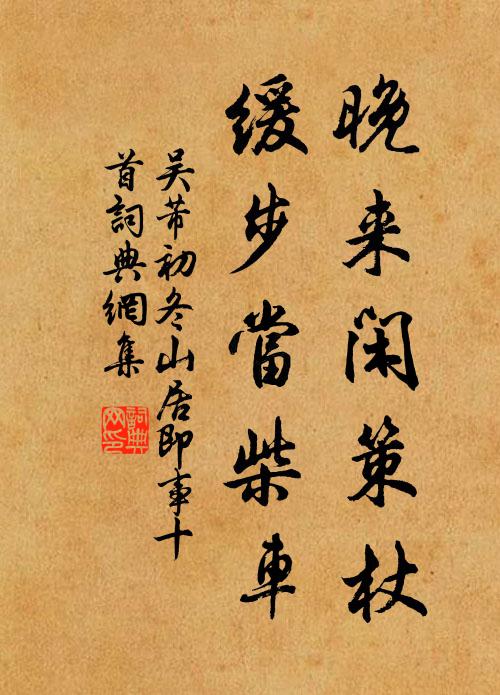 晚来闲策杖
緩步當柴車
吴芾初冬山居即事十
首詞典網集
詞典网印